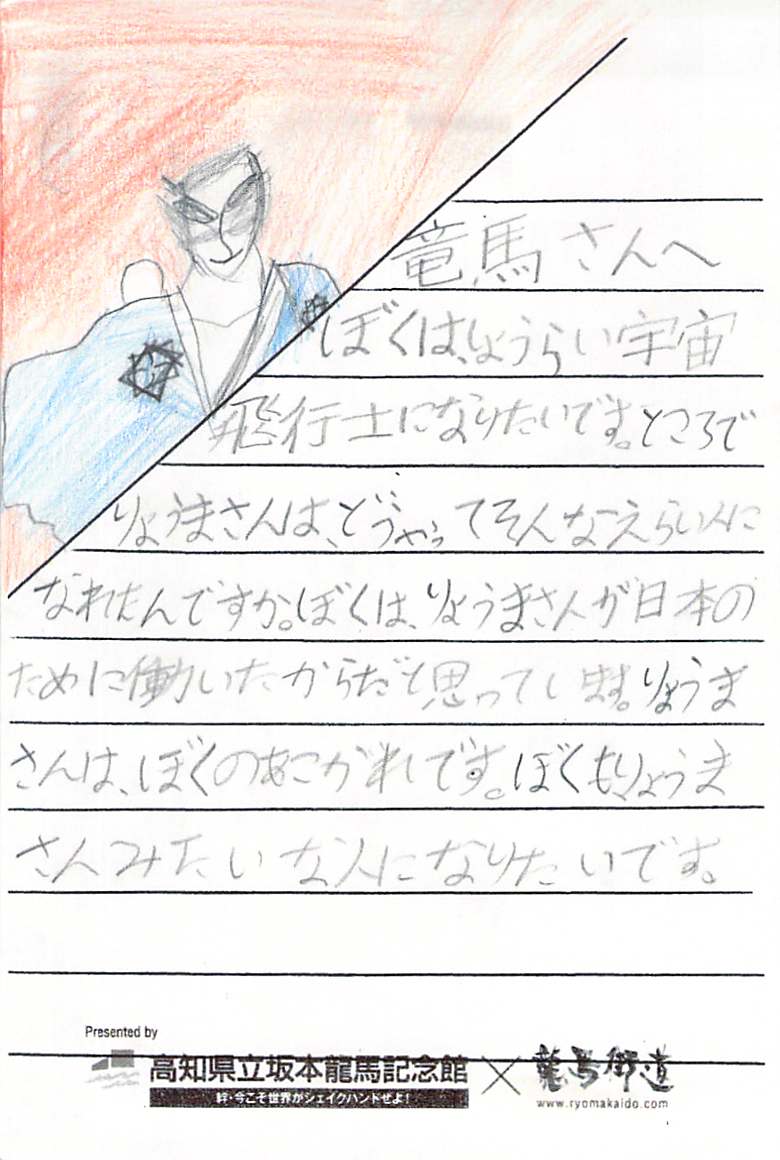 竜馬さんへ
ぼくは、しょうらい宇宙
飛行士になりたいです。ところで
りょうまさんは、どうやってそんなえらい人に
なれたんですか。ぼくは、りょうまさんが日本の
ために働いたからだと思っています。りょうま
さんは、ぼくのあこがれです。ぼくも、りょうま
さんみたいな人になりたいです。
Presented by
高知県立坂本龍馬記念館 × 龍馬街道
絆・今こそ世界がシェイクハンドせよ！
www.ryomakaido.com